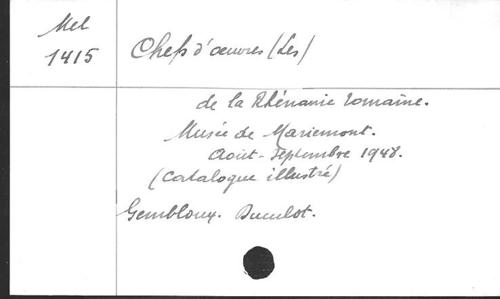 Mel
1415
Chefs d'œuvres (Les)
de la Rhénanie romaine.
Musée de Mariemont.
Août-Septembre 1948.
(Catalogue illustré)
Gembloux. Duculot.